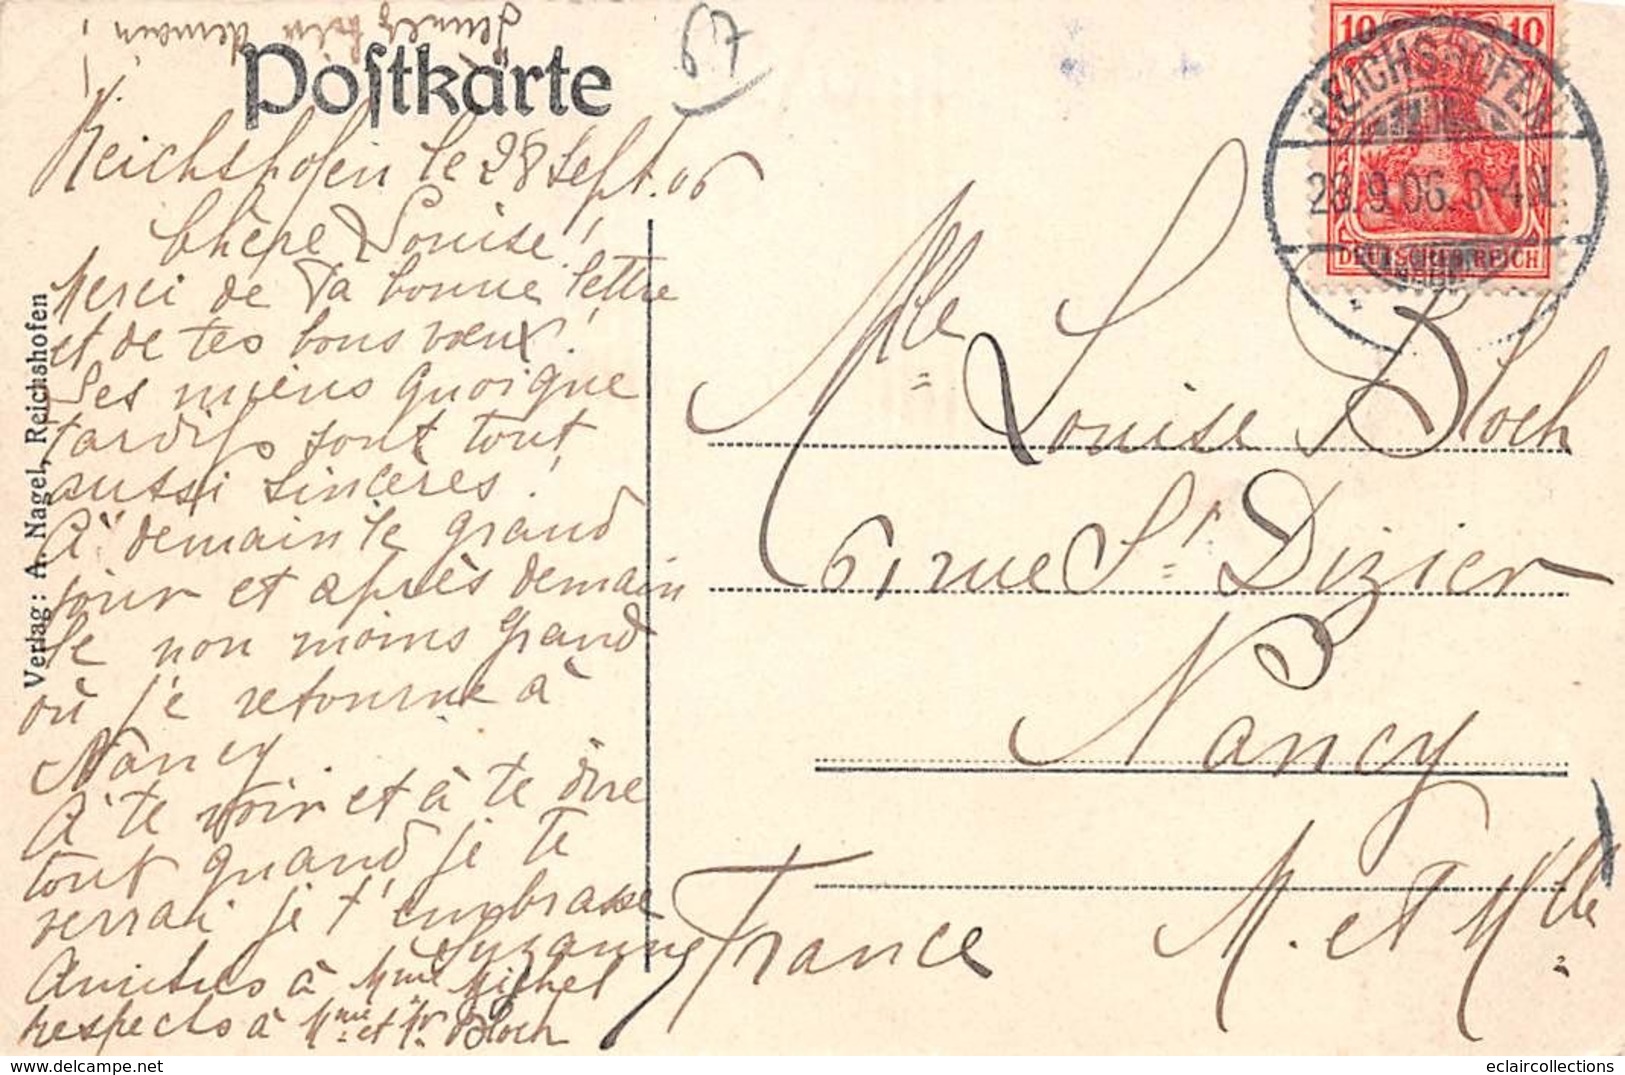 demain !
Postkarte
67
10 10
REICHSHOFEN
28.9.06. 3-4 N.
DEUTSCHES REICH
Reichshofen le 28 Sept. 06
Chère Louise !
Merci de Ta bonne lettre
et de tes bons vœux !
Les miens quoique
tardifs sont tout
aussi sincères !
A demain le grand
jour et après demain
le non moins grand
où je retourne à
Nancy.
A te voir et à te dire
tout quand je te
verrai je t'embrasse
Suzanne
Amitiés à Mme Michel
respects à Mme et Mr Bloch
Verlag: A. Nagel, Reichshofen
Mlle Louise Bloch
61 rue St Dizier
Nancy
France M. et Mlle
delcampe.net
eclaircollections